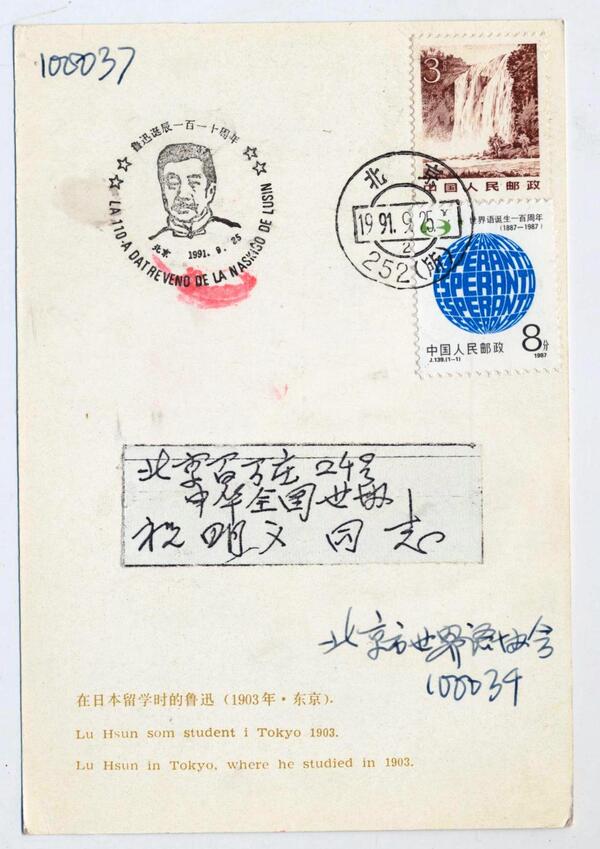 100037
3
中国人民邮政
鲁迅诞辰一百一十周年
北京 1991.9.25
LA 110-A DATREVENO DE LA NASKIĜO DE LUSIN
北京
1991.9.25
2
252(版)
世界语诞生一百周年
(1887-1987)
ESPERANTO
ESPERANTO
ESPERANTO
中国人民邮政 8分
J.139.(1-1) 1987
北京百万庄24号
中华全国世协
祝明义 同志
北京市世界语协会
100034
在日本留学时的鲁迅（1903年·东京）.
Lu Hsun som student i Tokyo 1903.
Lu Hsun in Tokyo, where he studied in 1903.